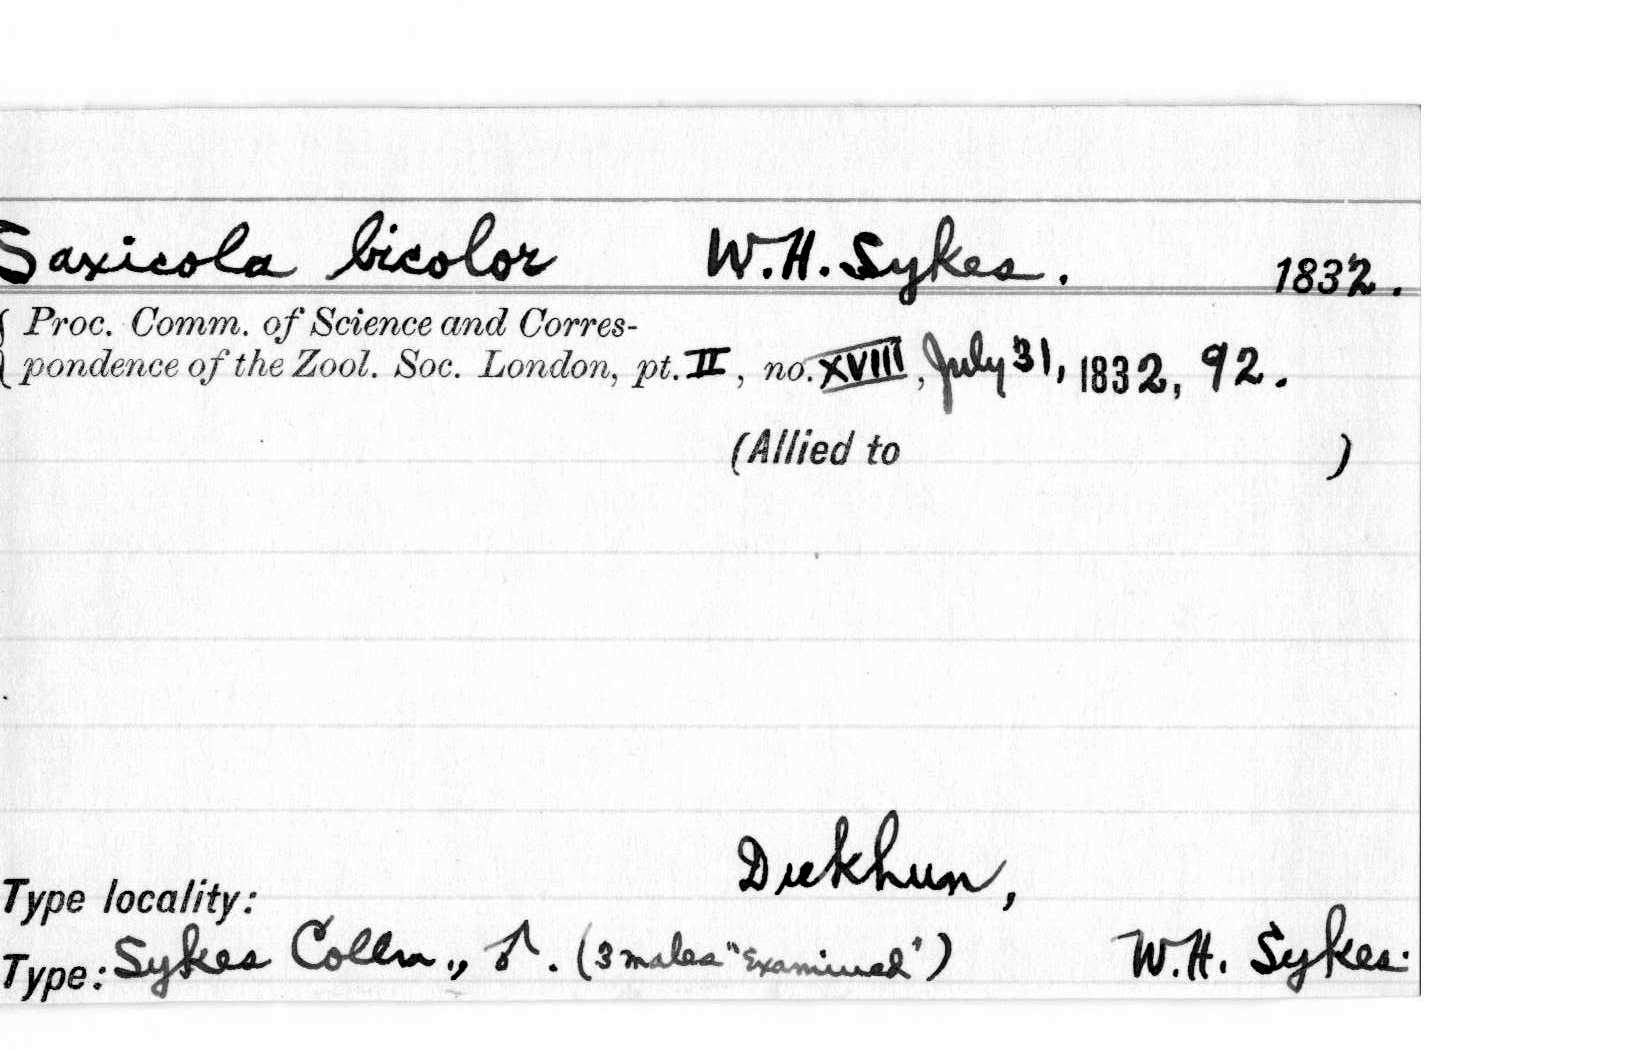 Saxicola bicolor W.H. Sykes. 1832.
Proc. Comm. of Science and Corres-
pondence of the Zool. Soc. London, pt. II, no. XVIII, July 31, 1832, 92.
(Allied to )
Dukhun,
Type locality:
Type: Sykes Colln., ♂. (3 males "Examined") W.H. Sykes.